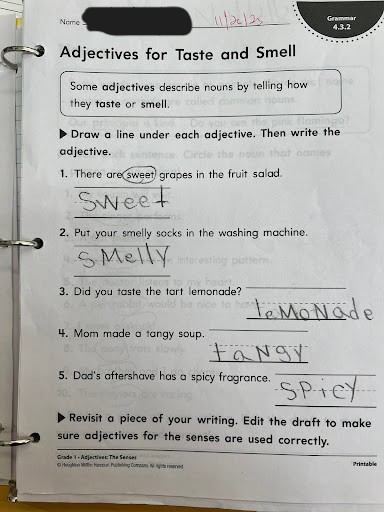 Name
11/26/25
Grammar
4.3.2
Adjectives for Taste and Smell
Some adjectives describe nouns by telling how
they taste or smell.
▶ Draw a line under each adjective. Then write the
adjective.
1. There are sweet grapes in the fruit salad.
Sweet
2. Put your smelly socks in the washing machine.
SMellY
3. Did you taste the tart lemonade?
leMoNade
4. Mom made a tangy soup.
taNgY
5. Dad's aftershave has a spicy fragrance.
SPicY
▶ Revisit a piece of your writing. Edit the draft to make
sure adjectives for the senses are used correctly.
Grade 1 • Adjectives: The Senses
© Houghton Mifflin Harcourt Publishing Company. All rights reserved.
Printable